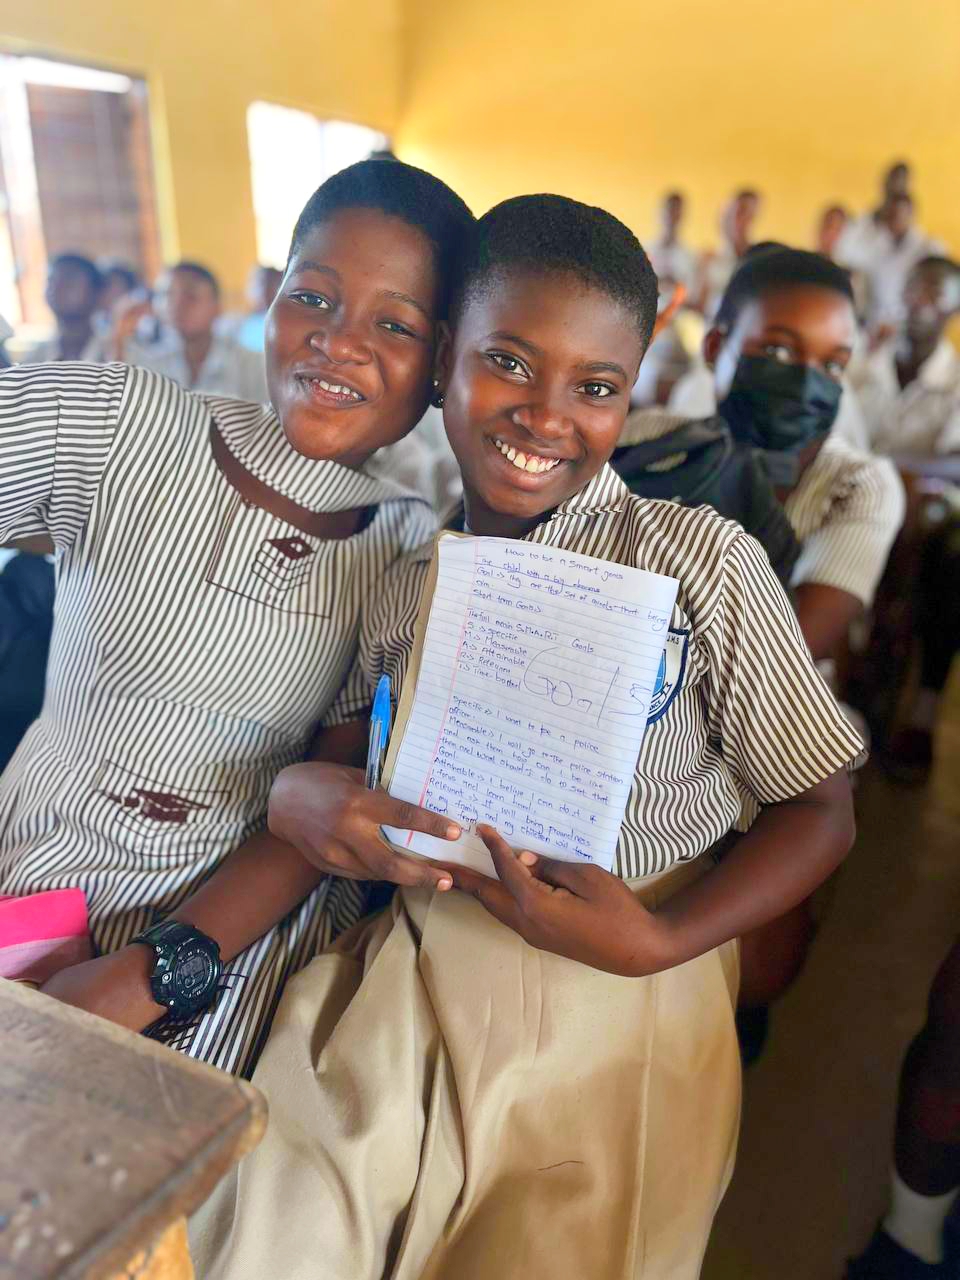 How to be a smart goals
The child with a big dreams
Goal => they are the set of minds that being
aim.
Short term Goals=>
The full mean S.M.A.R.T Goals
S => specific
M => Measurable
A => Attainable
R => Relevant
T => Time-
Goals
Specific => I want to be a police
officer.
Measurable => I will go to the police station
and ask them how can I be like
them and what should I do to get that
Goal.
Attainable => I believe I can do it if
I focus and learn hard.
Relevant => It will bring proudness
to my family and my children will
learn from